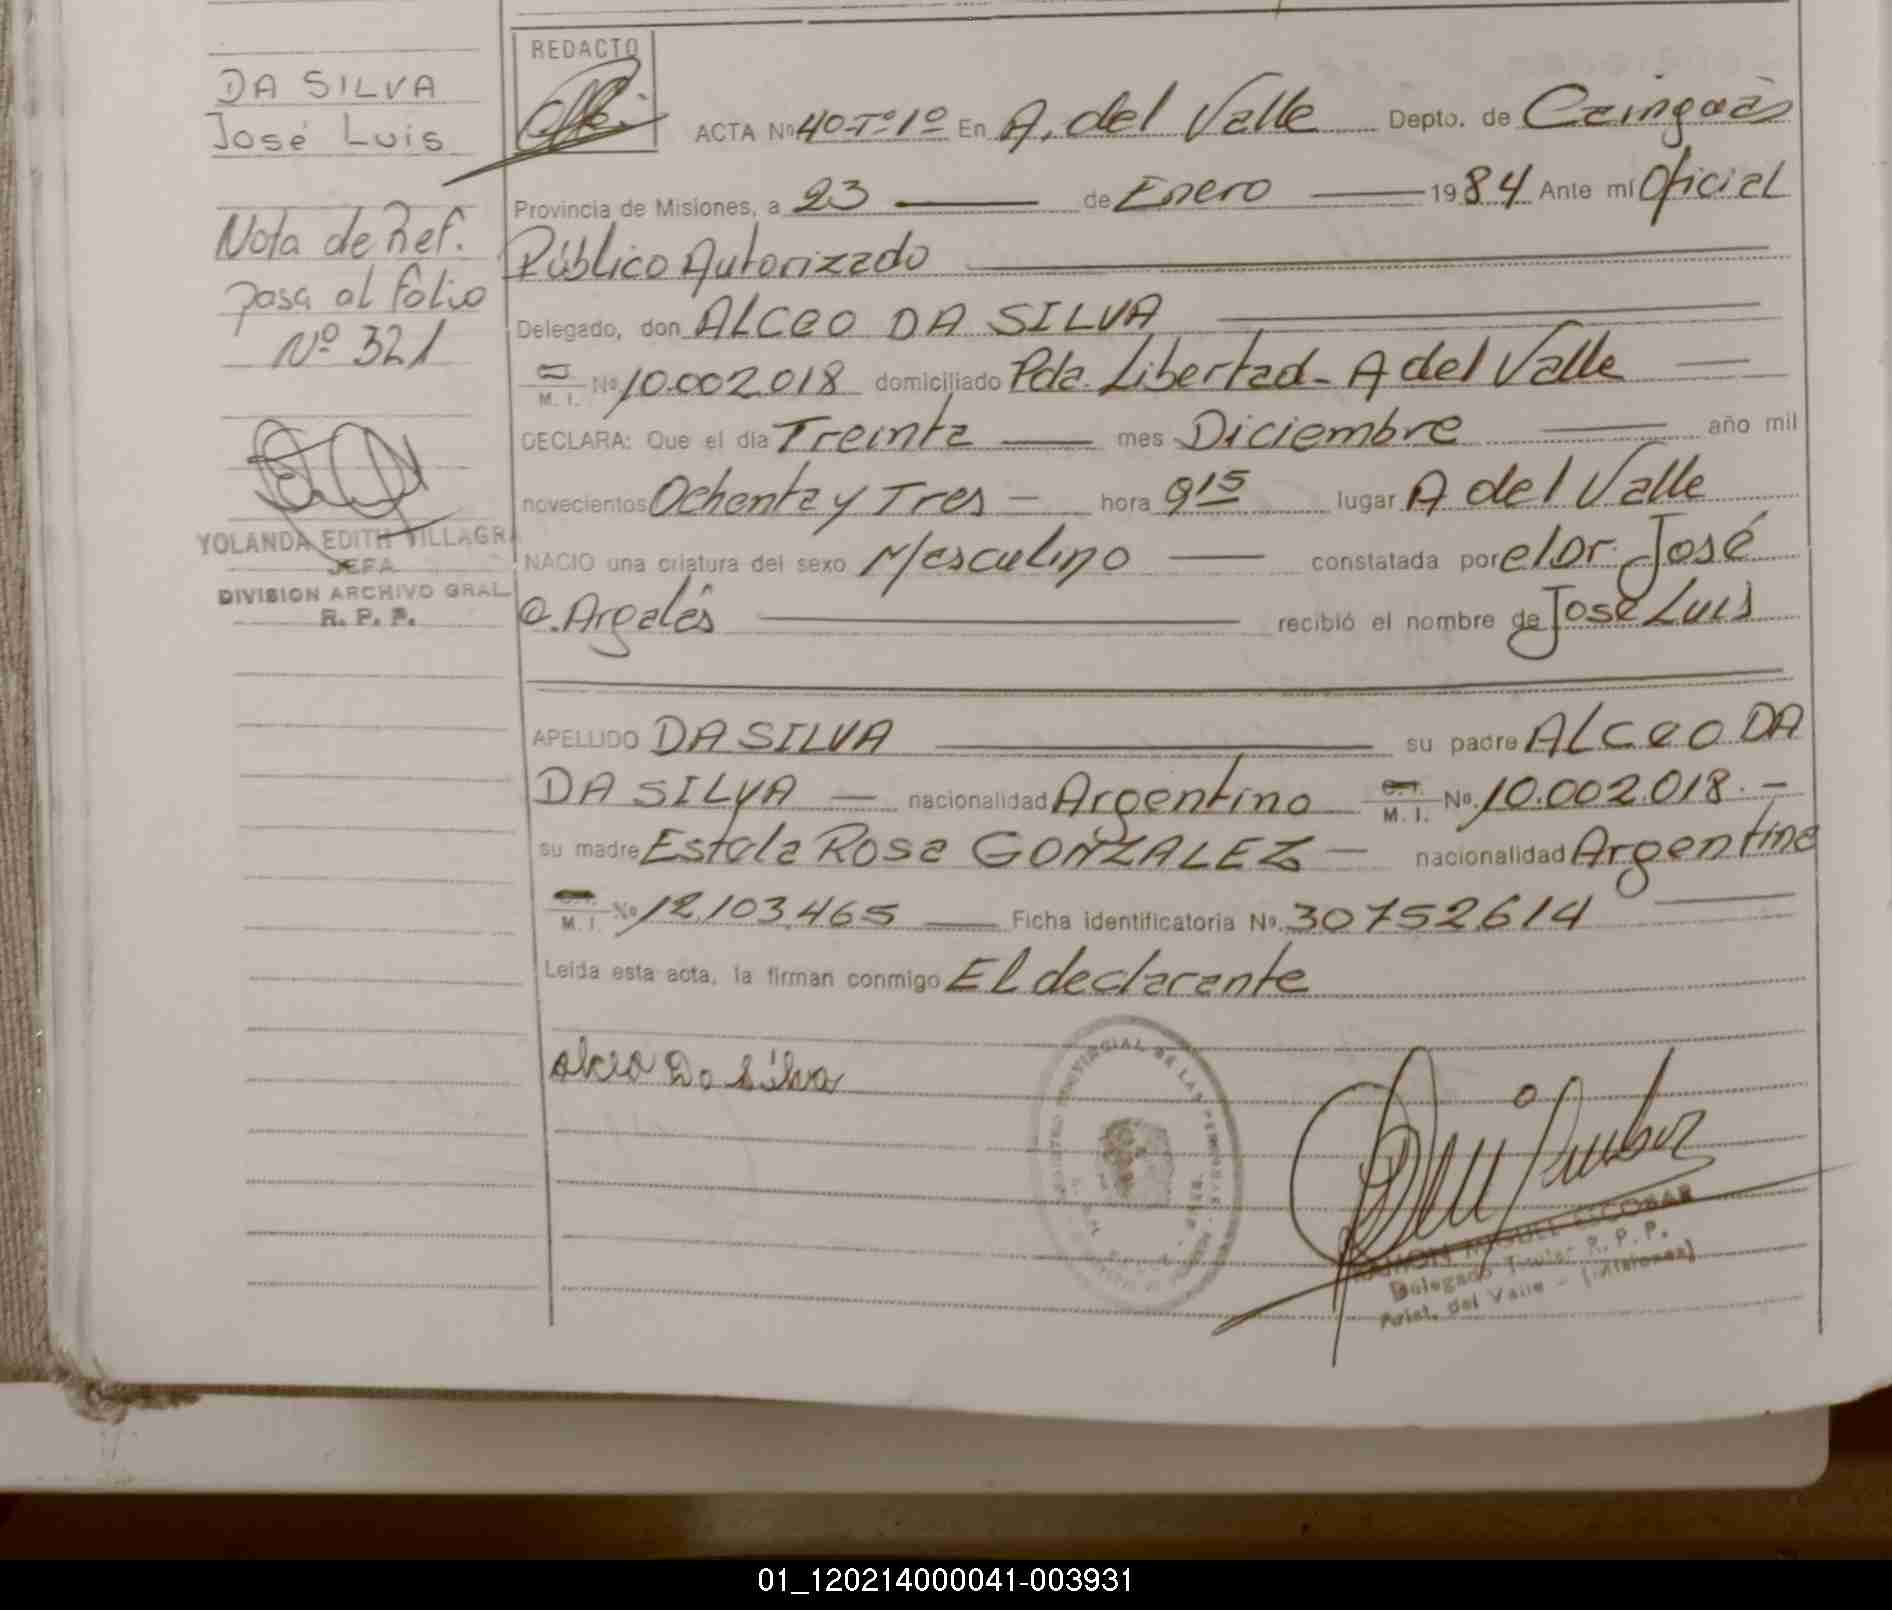 DA SILVA
José Luis
Nota de Ref.
pasa al folio
Nº 321
YOLANDA EDITH VILLAGRA
JEFA
DIVISION ARCHIVO GRAL
R. P. P.
REDACTO
ACTA Nº 40-Tº1º En A. del Valle Depto. de Cainguás
Provincia de Misiones, a 23 de Enero 1984 Ante mí Oficial
Público Autorizado
Delegado, don ALCEO DA SILVA
M. I. Nº 10.002.018 domiciliado Pda. Libertad - A del Valle
DECLARA: Que el día Treinta mes Diciembre año mil
novecientos Ochenta y Tres - hora 9 15 lugar A del Valle
NACIO una criatura del sexo Masculino constatada por el Dr. José
O. Argalás recibió el nombre de José Luis
APELLIDO DA SILVA su padre ALCEO DA
DA SILVA — nacionalidad Argentino C.I. M. I. No. 10.002.018.-
su madre Estela Rosa GONZALEZ — nacionalidad Argentina
M. I. Nº 12.103.465 Ficha identificatoria Nº. 30752614
Leída esta acta, la firman conmigo El declarante
Alceo Da Silva
REGISTRO PROVINCIAL DE LAS PERSONAS
RAMON MIGUEL ESCOBAR
Delegado Titular R. P. P.
Arist. del Valle - (Misiones)
01_120214000041-003931